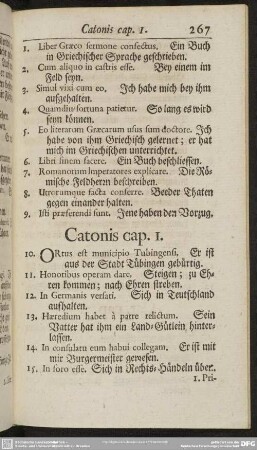 Catonis cap. 1. 267
1. Liber Græco sermone confectus. Ein Buch
in Griechischer Sprache geschrieben.
2. Cum aliquo in castris esse. Bey einem im
Feld seyn.
3. Simul vixi cum eo. Ich habe mich bey ihm
aufgehalten.
4. Quamdiu fortuna patietur. So lang es wird
seyn können.
5. Eo literarum Græcarum usus sum doctore. Ich
habe von ihm Griechisch gelernet; er hat
mich im Griechischen unterrichtet.
6. Libri finem facere. Ein Buch beschliessen.
7. Romanorum Imperatores explicare. Die Rö-
mische Feldherrn beschreiben.
8. Utrorumque facta conferre. Beeder Thaten
gegen einander halten.
9. Isti præferendi sunt. Jene haben den Vorzug.
Catonis cap. 1.
10. ORtus est municipio Tubingensi. Er ist
aus der Stadt Tübingen gebürtig.
11. Honoribus operam dare. Steigen; zu Eh-
ren kommen; nach Ehren streben.
12. In Germanis versari. Sich in Teutschland
aufhalten.
13. Hæredium habet à patre relictum. Sein
Vatter hat ihm ein Land-Gütlein hinter-
lassen.
14. In consulatu eum habui collegam. Er ist mit
mir Burgermeister gewesen.
15. In foro esse. Sich in Rechts-Händeln üben.
1. Pri-